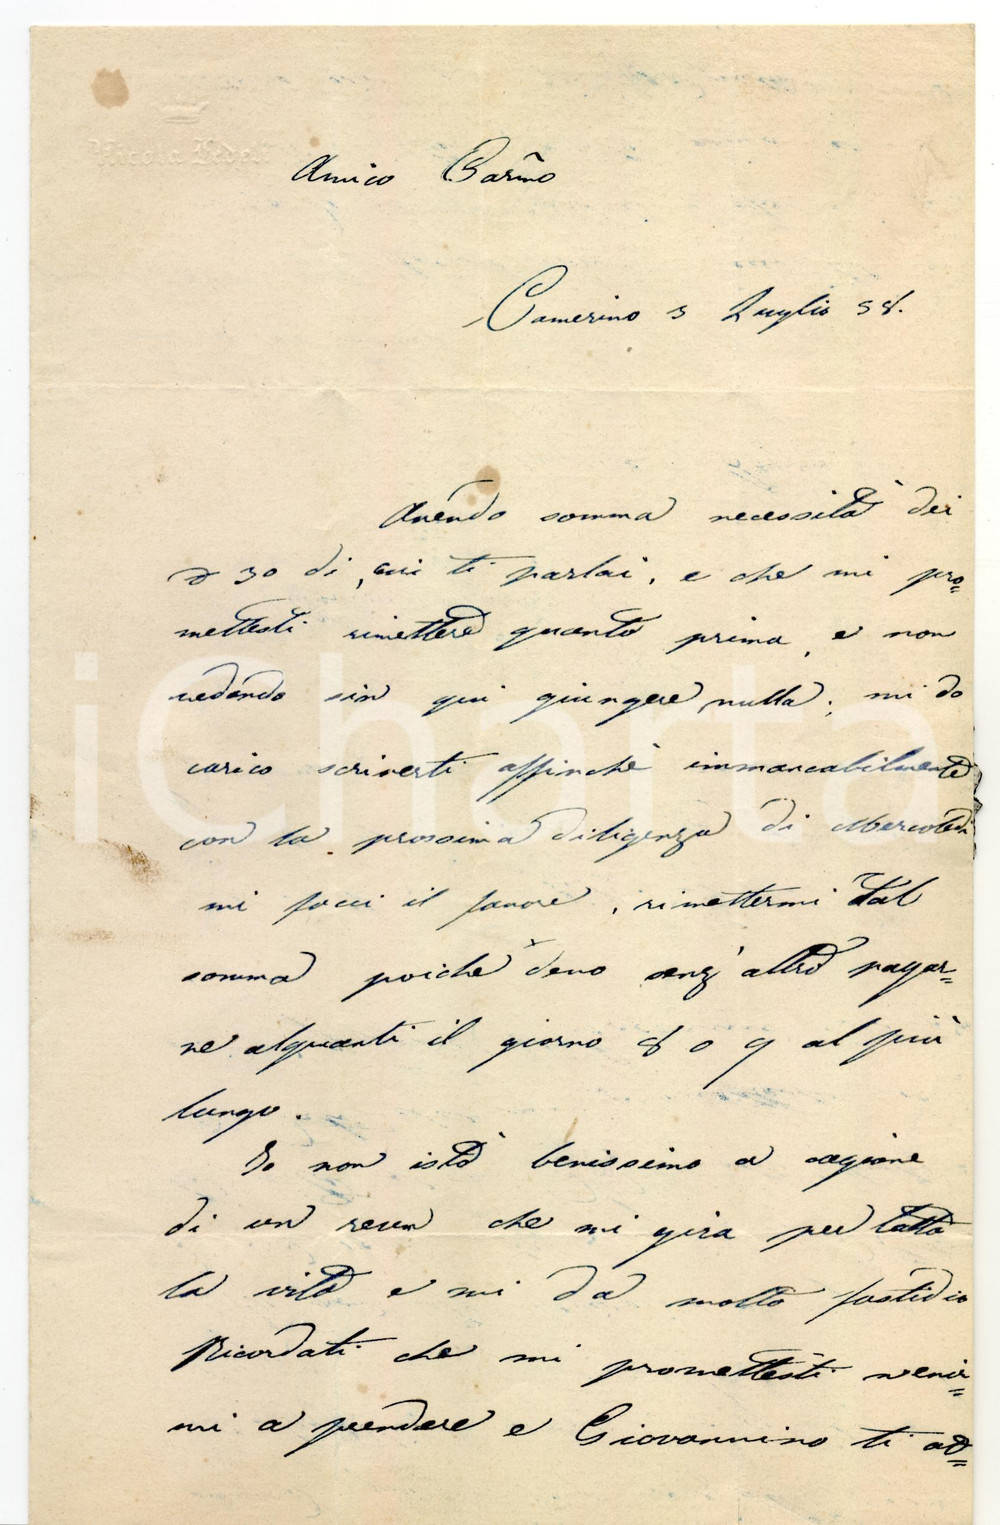 Nicola Fedeli
Amico Carmo
Camerino 3 Luglio 58.
Avendo somma necessità dei
30 di cui ti parlai, e che mi pro=
mettesti rimettere quanto prima, e non
vedendo sin qui giungere nulla; mi do
carico scriverti affinchè immancabilmente
con la prossima diligenza di Mercoledì
mi facci il favore, rimettermi tal
somma poichè devo senz'altro pagar=
ne alquanti il giorno 8 o 9 al più
lungo.
Io non istò benissimo a cagione
di un reum che mi gira per tutta
la vita e mi da molto fastidio
Ricordati che mi promettesti venir=
mi a prendere e Giovannino ti ad=
iCharta